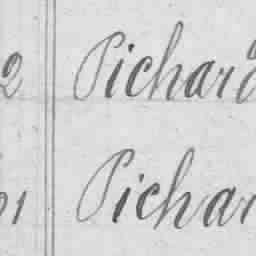 2 Pichard
01 Pichar